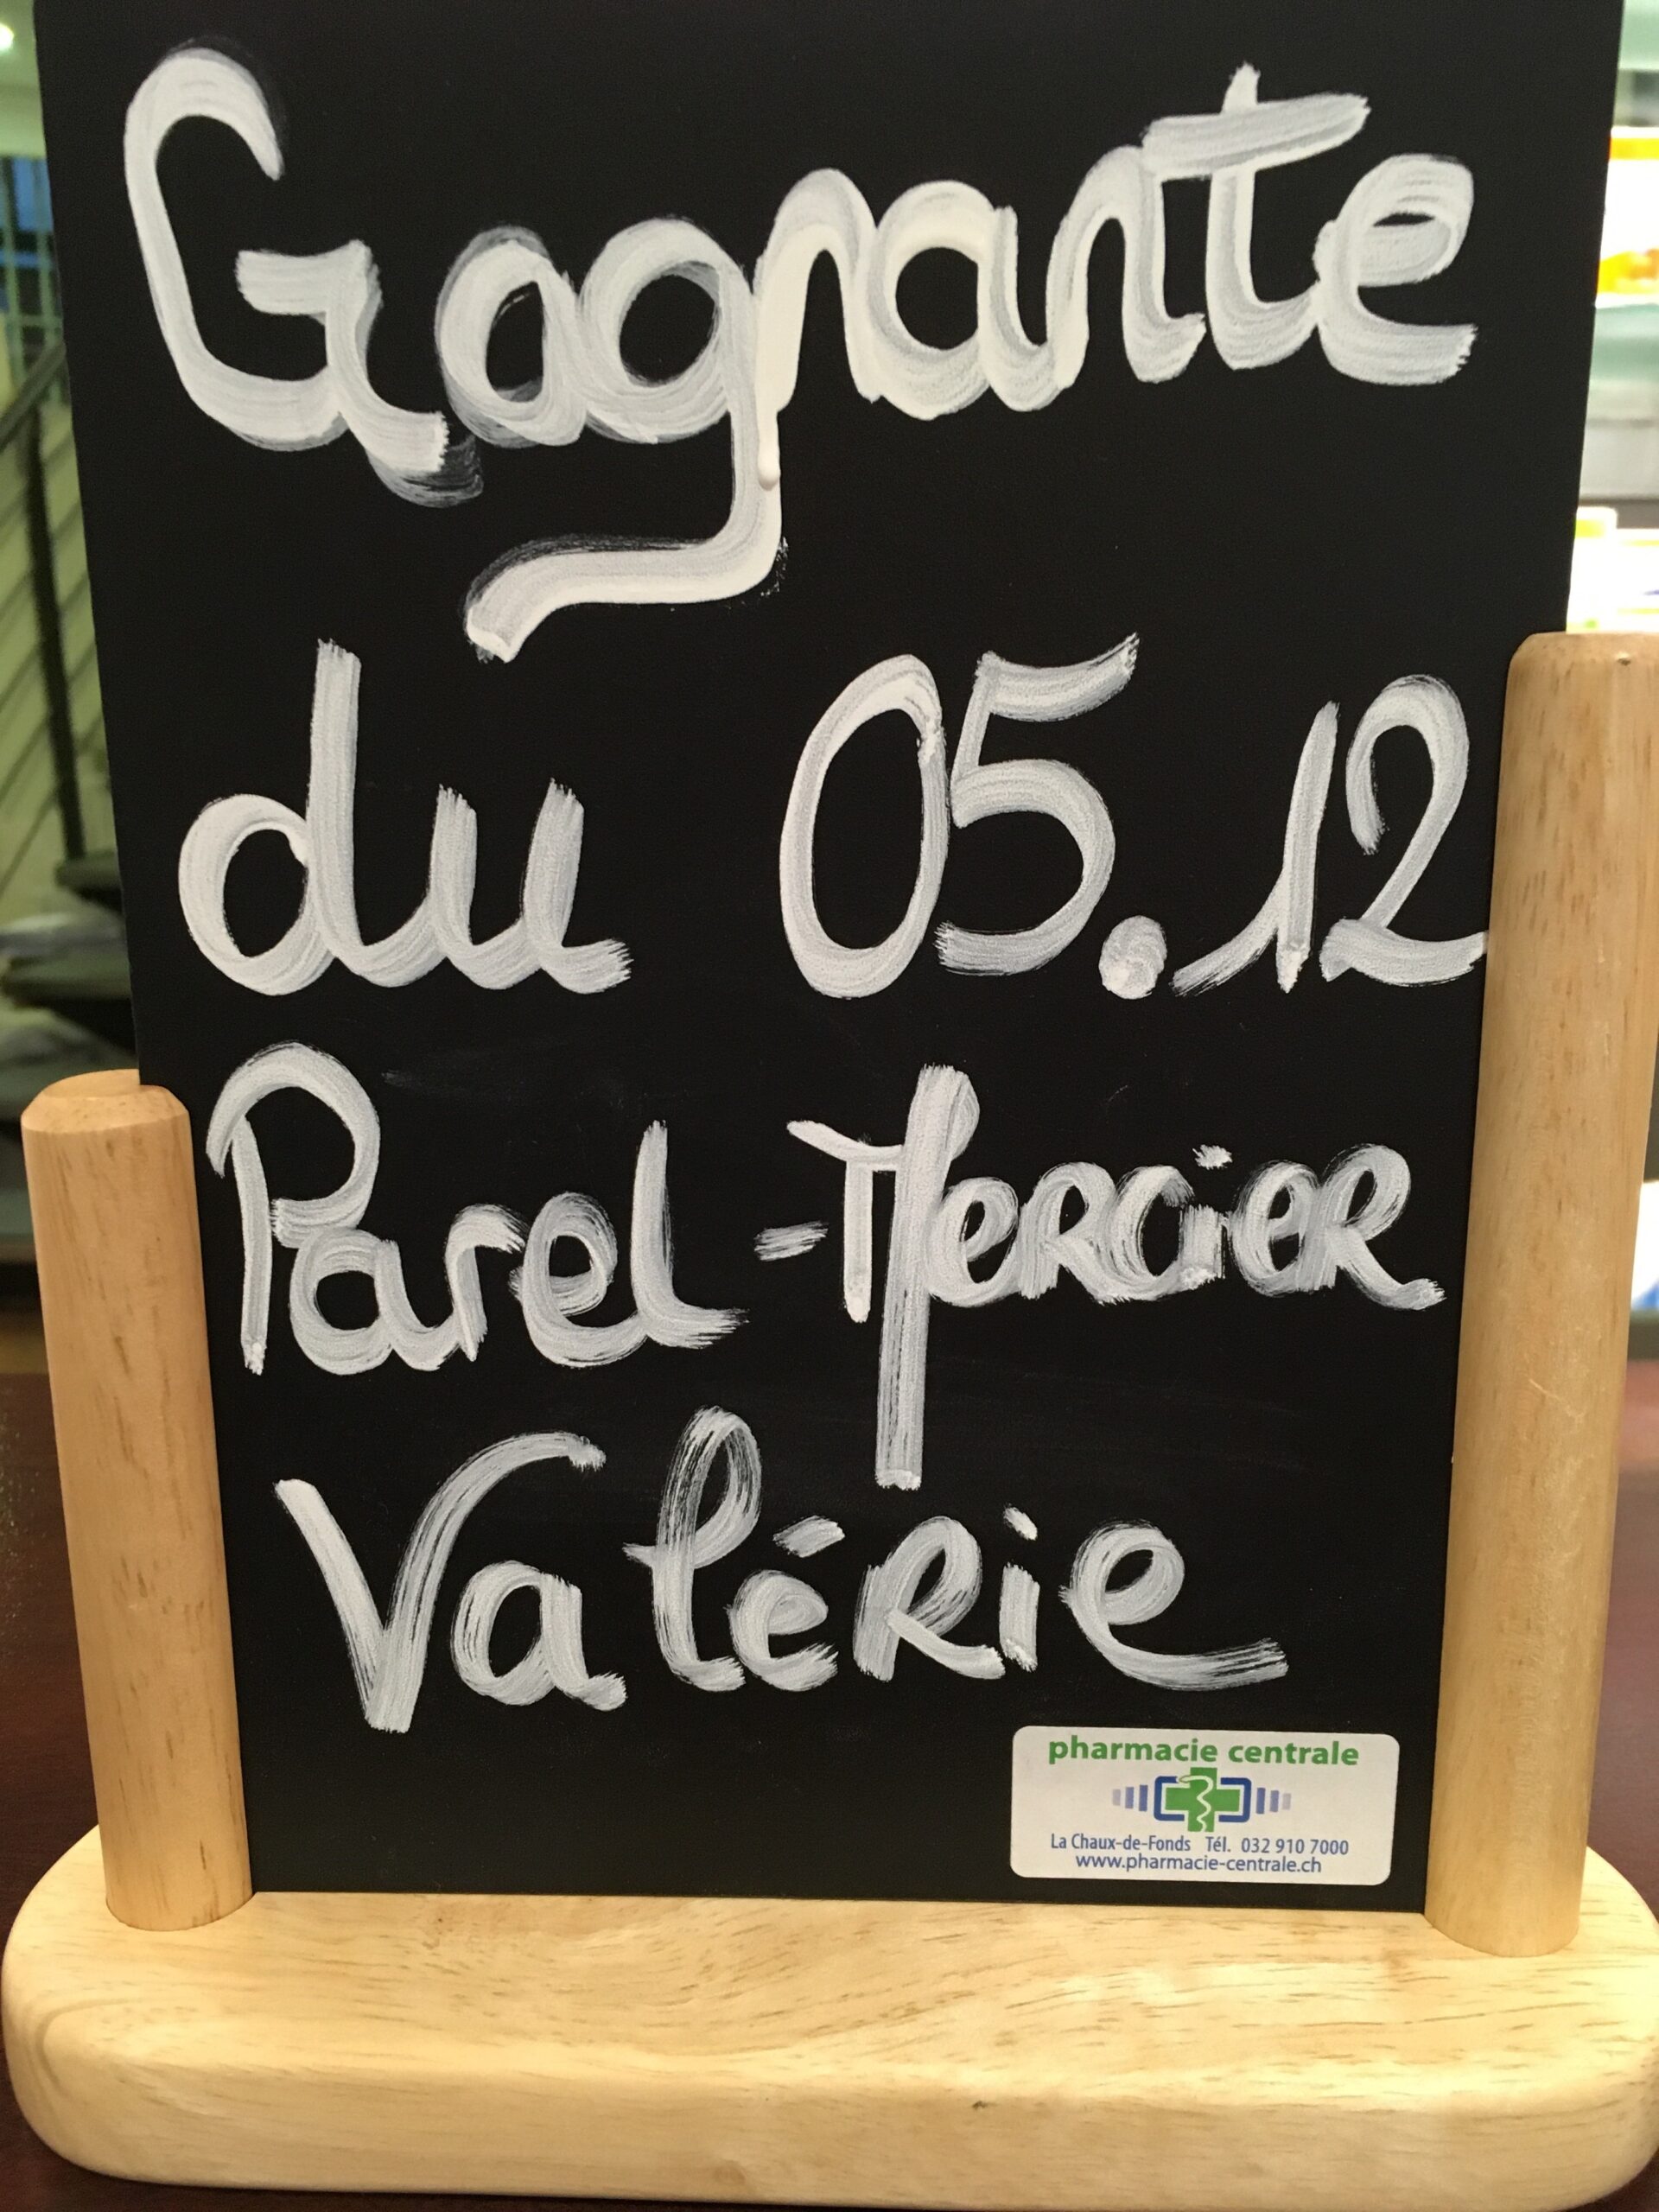 Gagnante
du 05.12
Parel-Mercier
Valérie
pharmacie centrale
La Chaux-de-Fonds Tél. 032 910 7000
www.pharmacie-centrale.ch